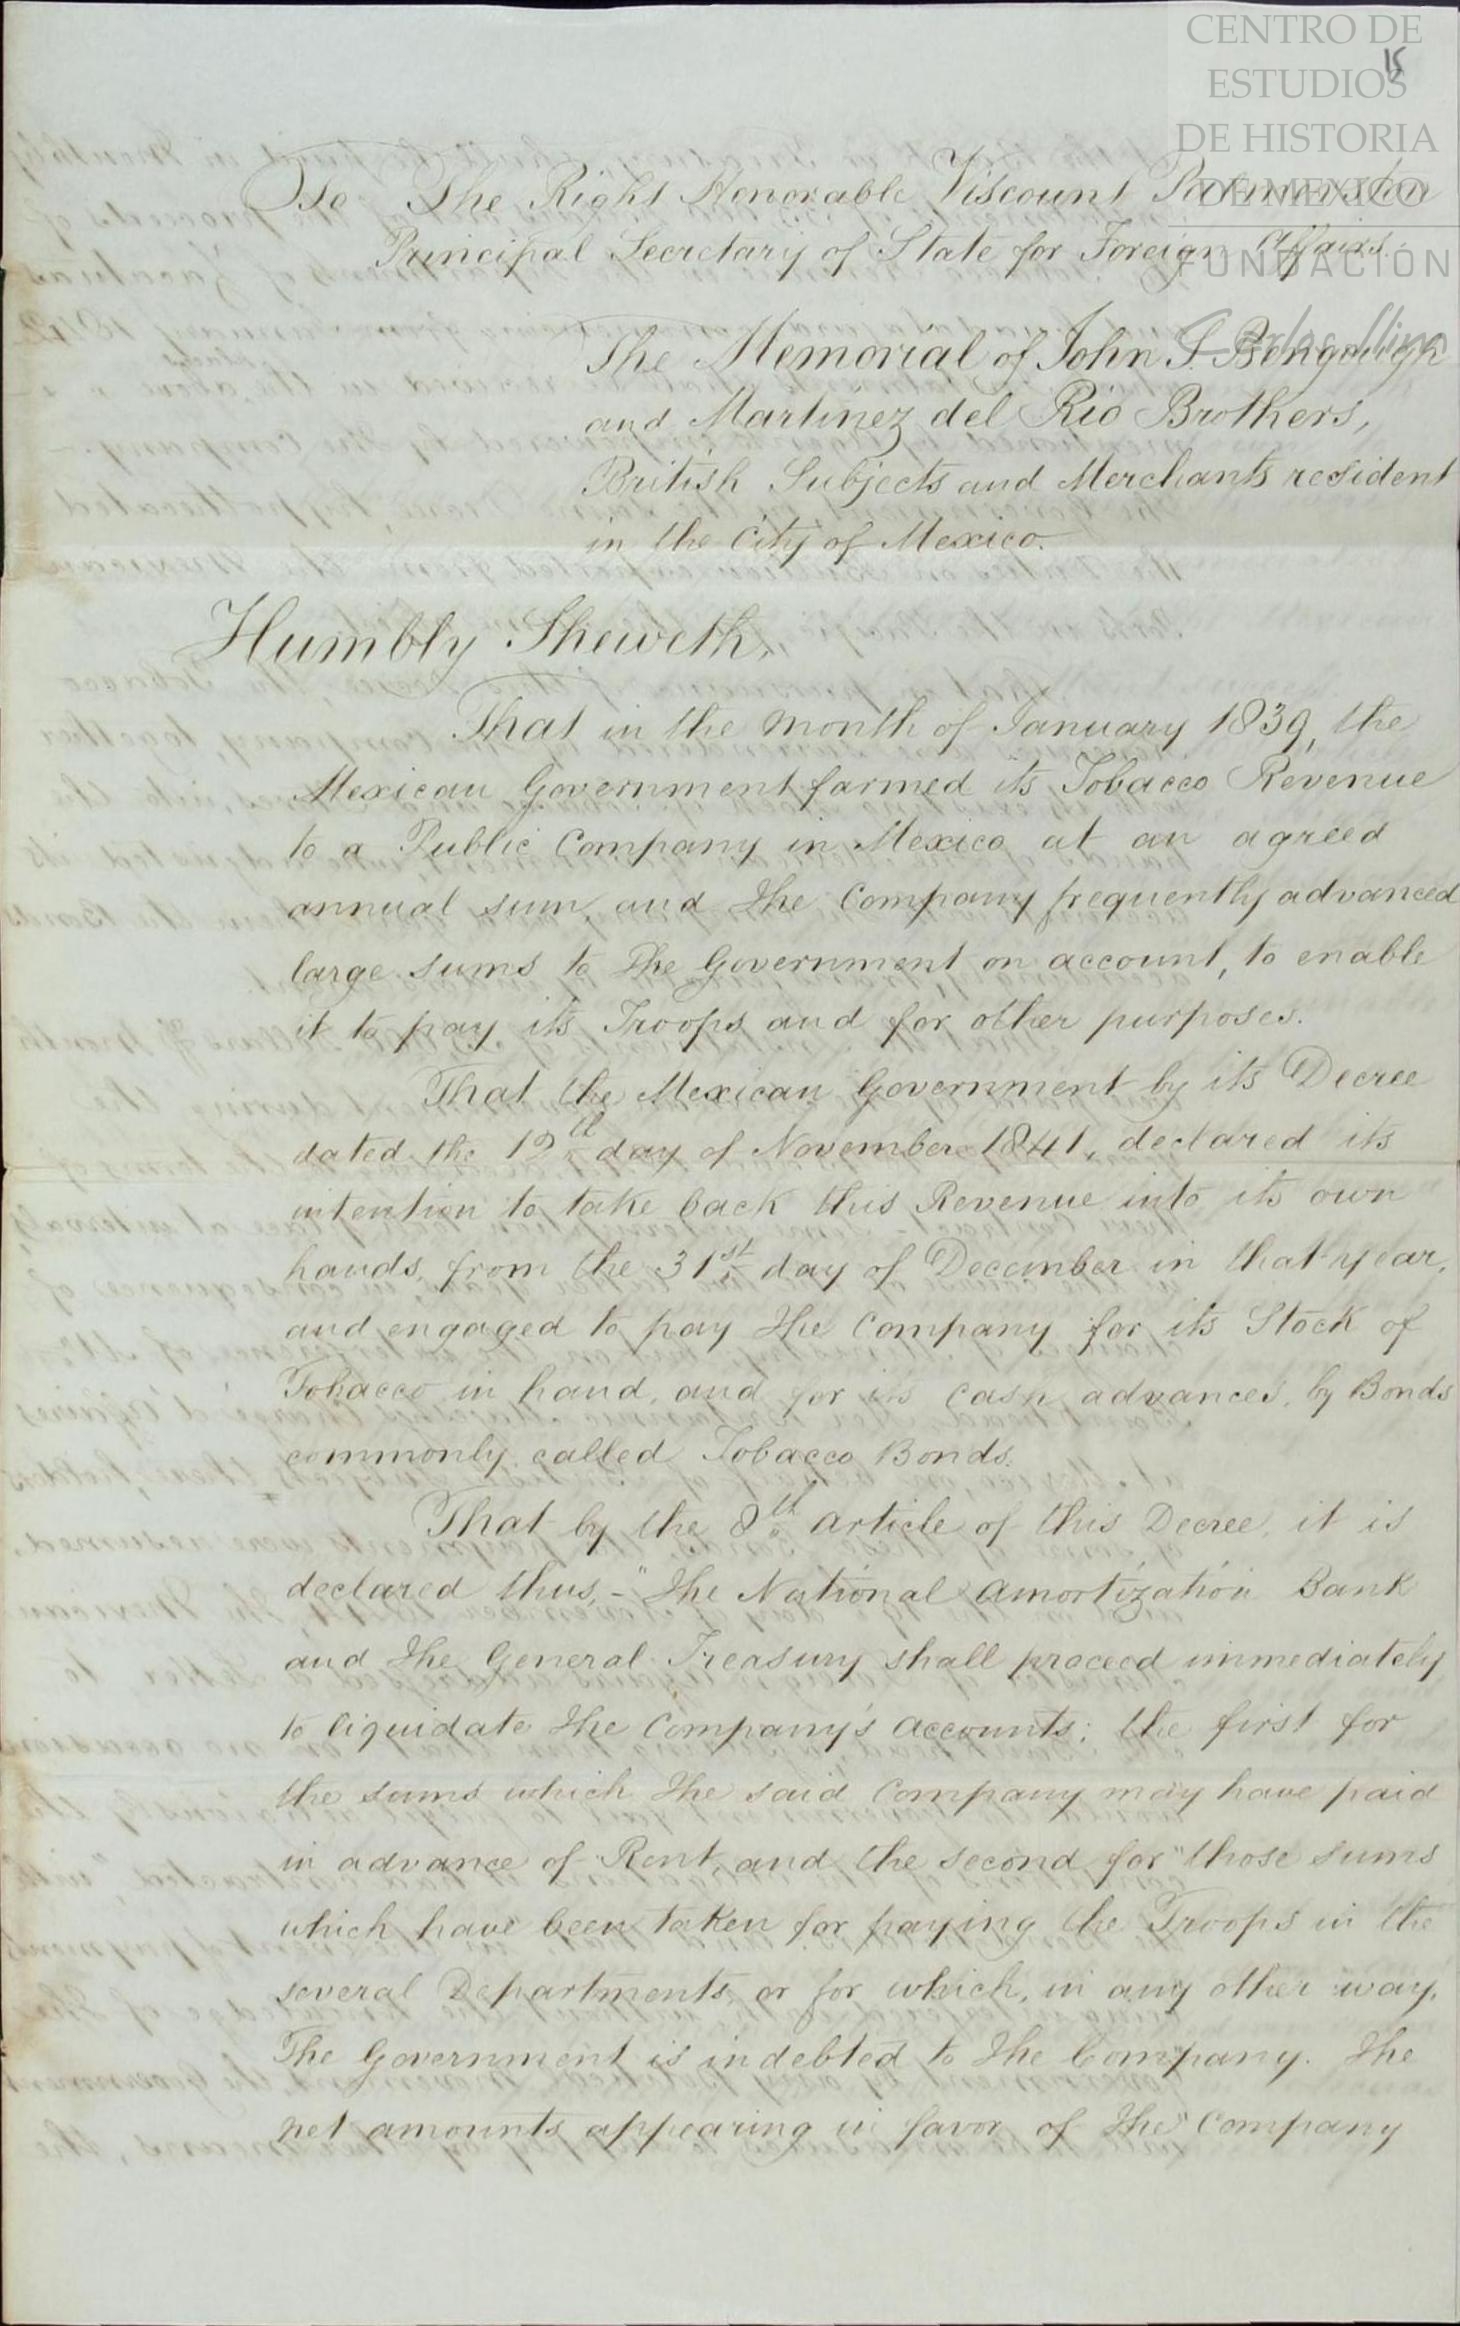 CENTRO DE
ESTUDIOS
DE HISTORIA
DE MEXICO
FUNDACIÓN
Carlos Slim
15
To The Right Honorable Viscount Palmerston
Principal Secretary of State for Foreign Affairs.
The Memorial of John S. Bengough
and Martinez del Rio Brothers,
British Subjects and Merchants resident
in the City of Mexico.
Humbly Sheweth,
That in the month of January 1839, the
Mexican Government farmed its Tobacco Revenue
to a Public Company in Mexico at an agreed
annual sum, and the Company frequently advanced
large sums to the Government on account, to enable
it to pay its Troops and for other purposes.
That the Mexican Government by its Decree
dated the 12th day of November 1841, declared its
intention to take back this Revenue into its own
hands, from the 31st day of December in that year,
and engaged to pay the Company for its Stock of
Tobacco in hand, and for its cash advances, by Bonds
commonly called Tobacco Bonds.
That by the 8th article of this Decree, it is
declared thus, - "the National Amortization Bank
and the General Treasury shall proceed immediately
to liquidate the Company's accounts; the first for
the sums which the said Company may have paid
in advance of Rent, and the second for those sums
which have been taken for paying the Troops in the
several Departments, or for which, in any other way,
The Government is indebted to the Company. The
net amounts appearing in favor of the Company